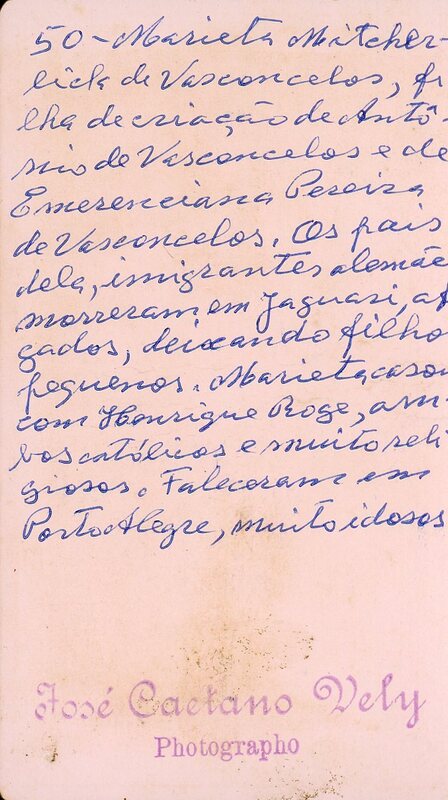 50 - Marieta Mitcher-
lick de Vasconcelos, fi
lha de criação de Antô-
nio de Vasconcelos e de
Emerenciana Pereira
de Vasconcelos. Os pais
dela, imigrantes alemãe
morreram em Jaguari, af
gados, deixando filho
pequenos. Marieta casou
com Henrique Roge, am-
bos católicos e muito reli
giosos. Faleceram em
Porto Alegre, muito idosos
José Caetano Vely
Photographo